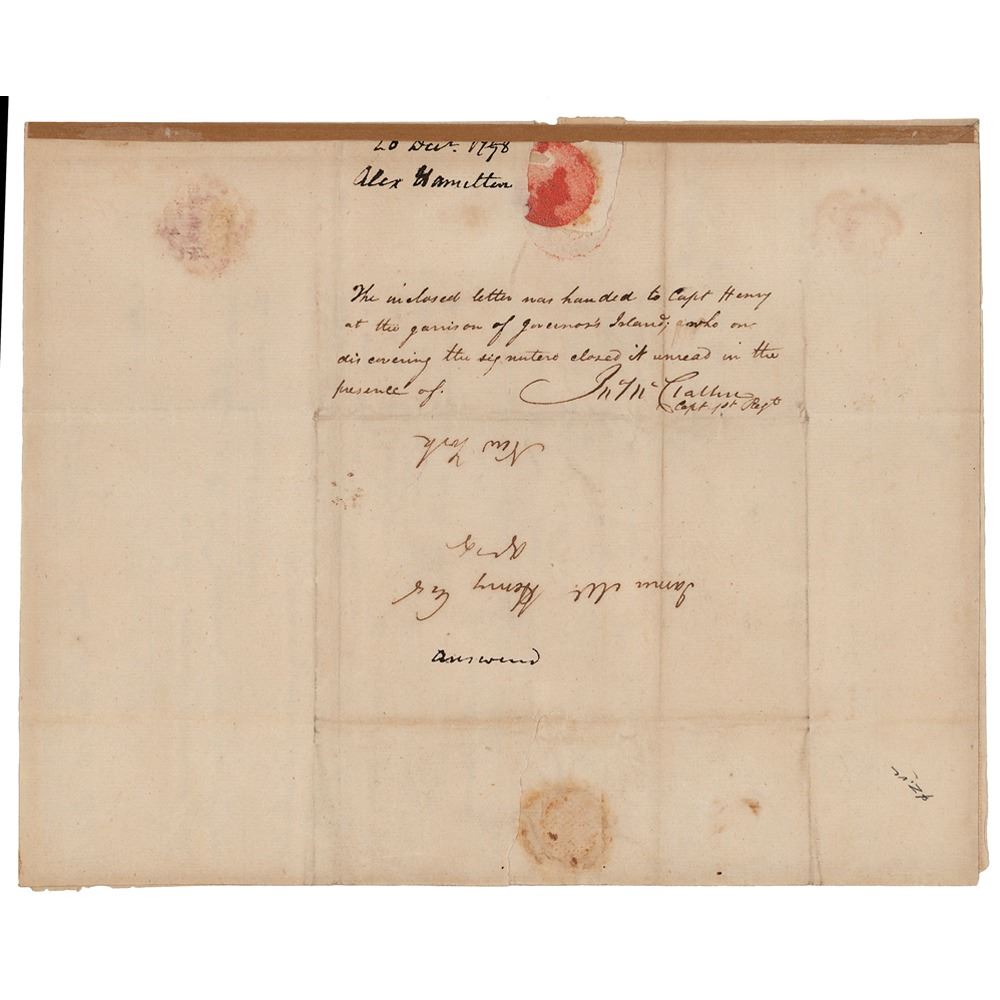 20 Decr. 1798
Alex Hamilton
The inclosed letter was handed to Capt Henry
at the garrison of Governor's Island; who on
discovering the signature closed it unread in the
presence of.
Capt 1st Regt
New York
James Mc. Henry Esq
Answered